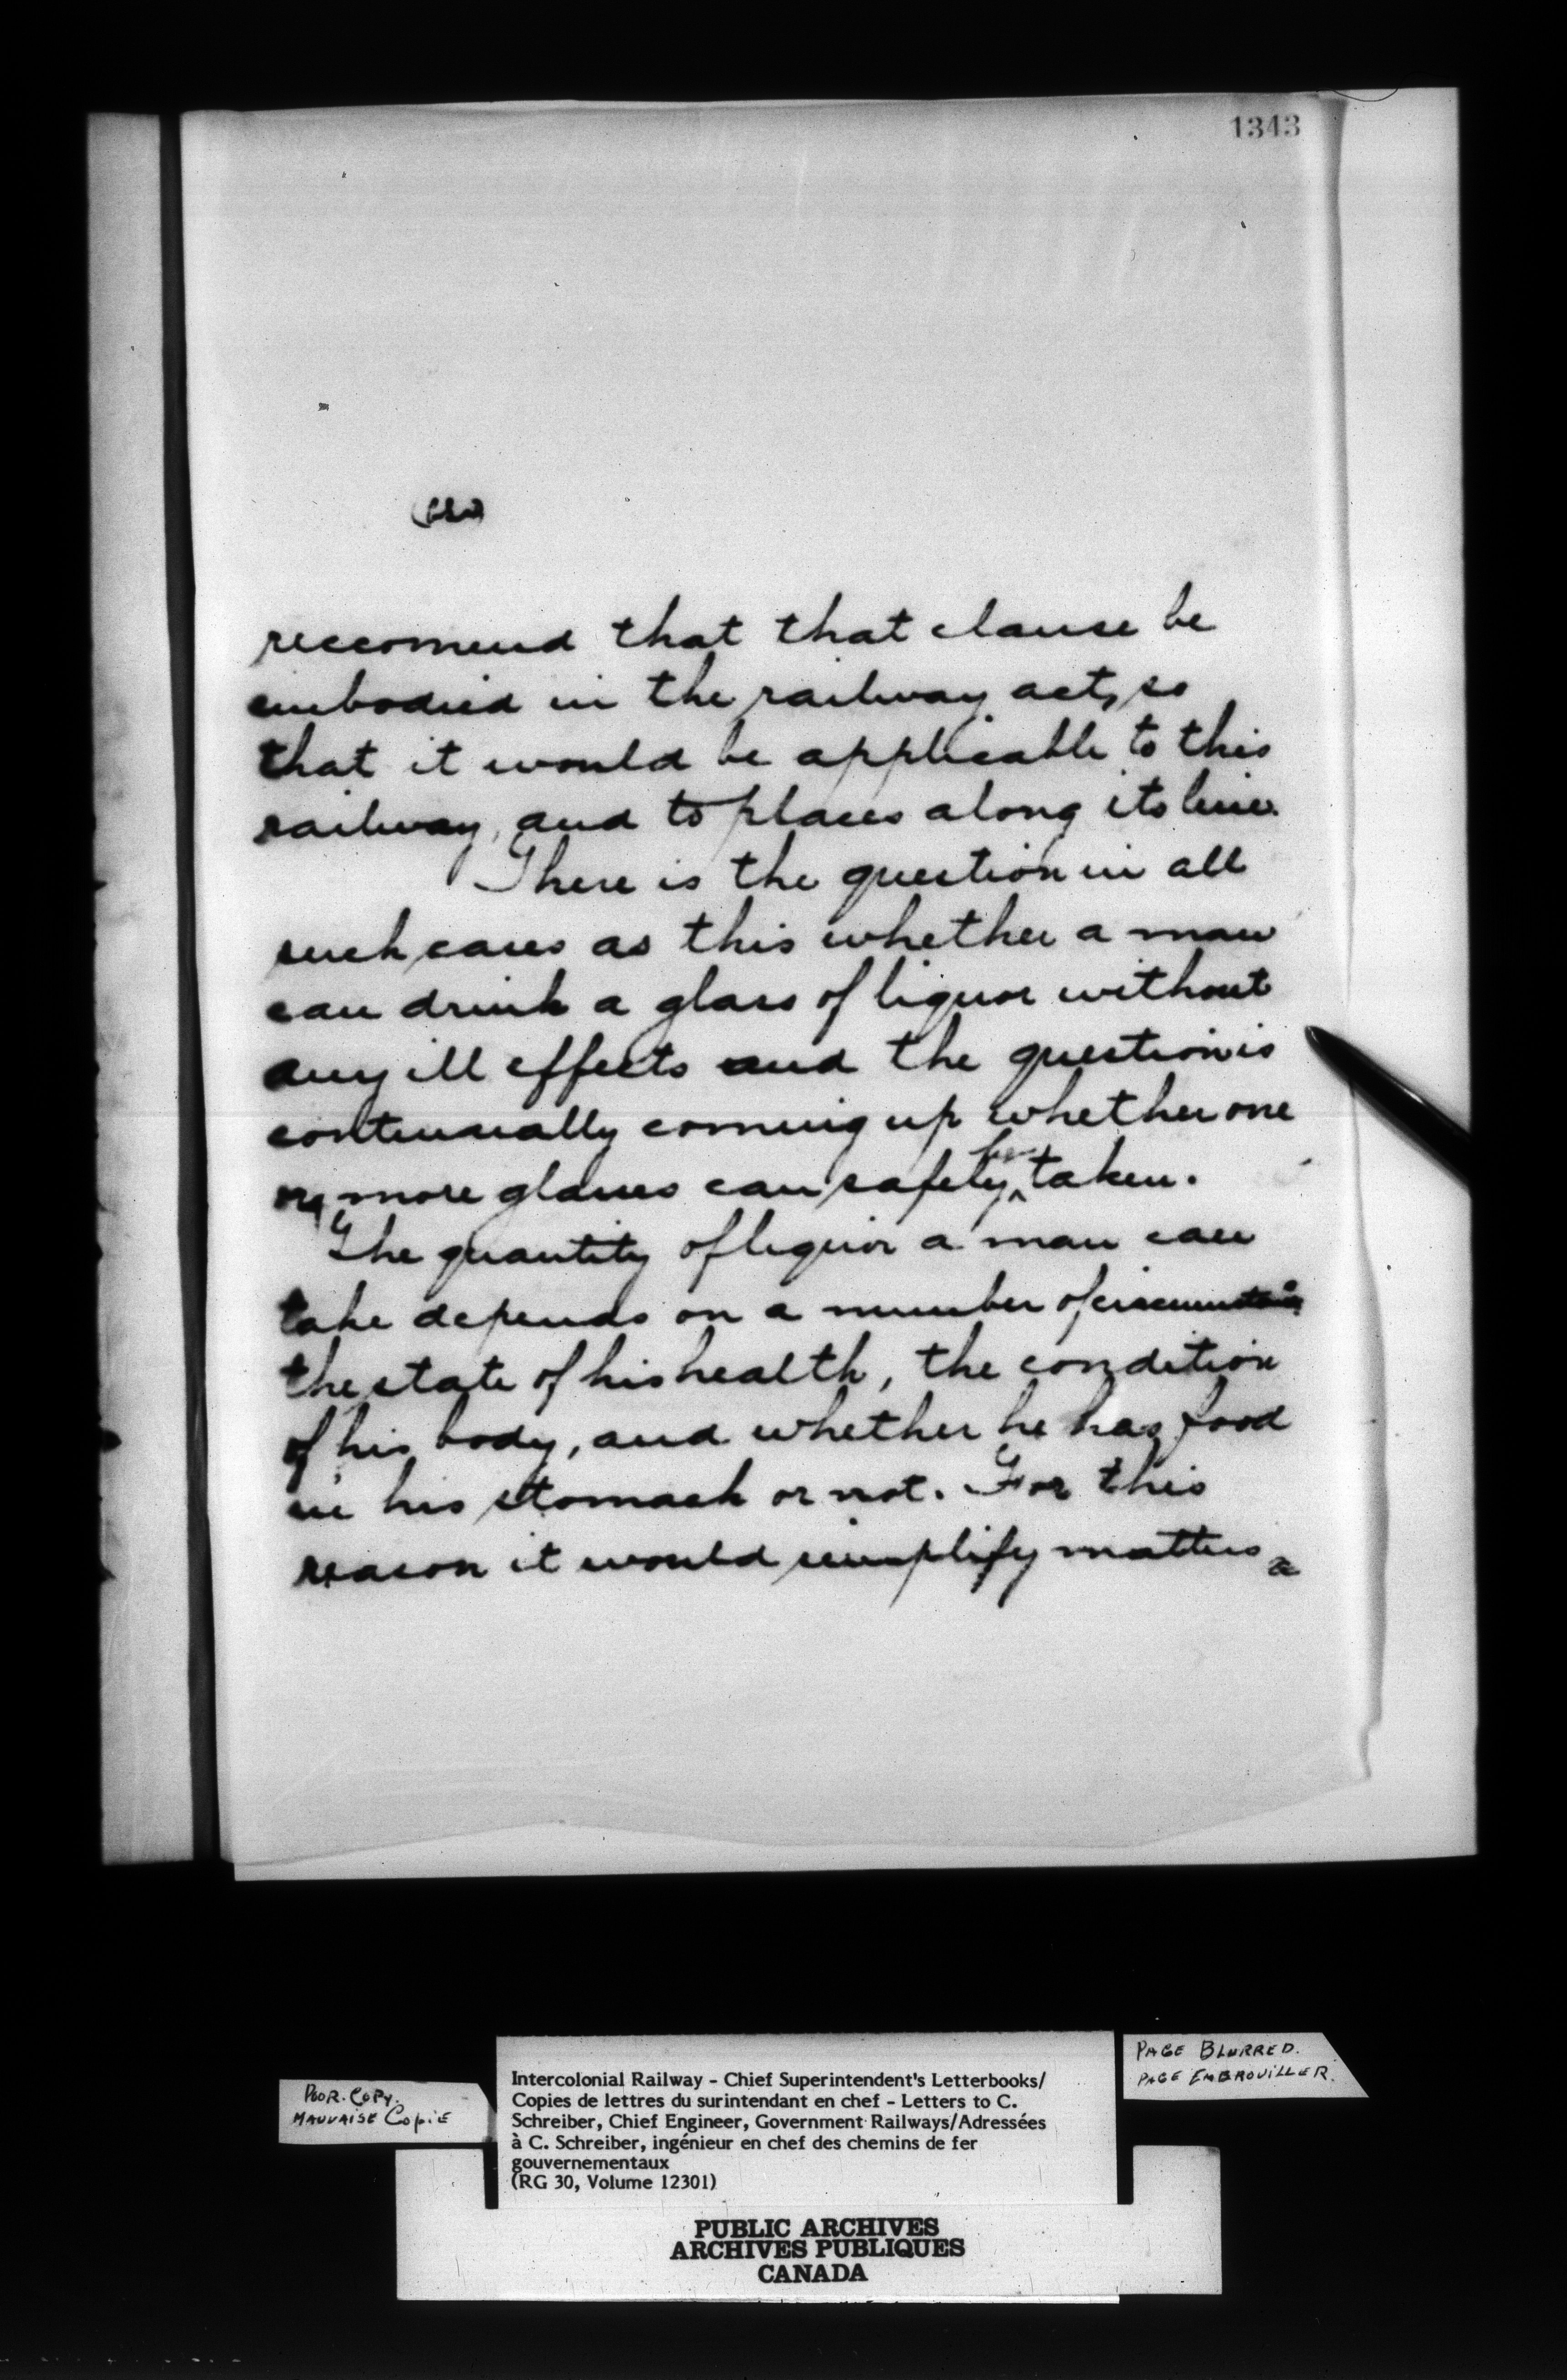 1343
reccomend that that clause be
embodied in the railway act, so
that it would be applicable to this
railway, and to places along its line.
There is the question in all
such cases as this whether a man
can drink a glass of liquor without
any ill effects and the question is
continually coming up whether one
or more glasses can safely be taken.
The quantity of liquor a man can
take depends on a number of
the state of his health, the condition
of his body, and whether he has food
in his stomach or not. For this
reason it would simplify matters a
POOR COPY.
MAUVAISE COPIE
Intercolonial Railway - Chief Superintendent's Letterbooks/
Copies de lettres du surintendant en chef - Letters to C.
Schreiber, Chief Engineer, Government Railways/Adressées
à C. Schreiber, ingénieur en chef des chemins de fer
gouvernementaux
(RG 30, Volume 12301)
PAGE BLURRED.
PAGE EMBROUILLER.
PUBLIC ARCHIVES
ARCHIVES PUBLIQUES
CANADA